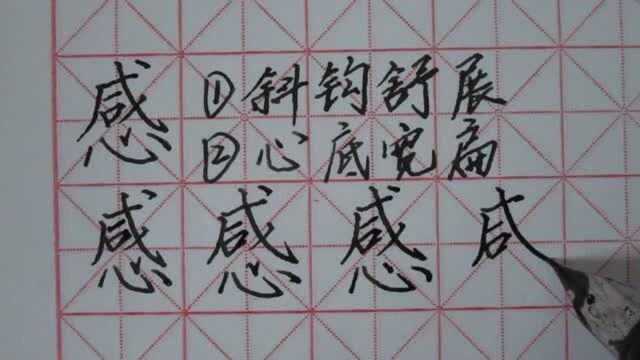 感 ①斜钩舒展
②心底宽扁
感 感 感